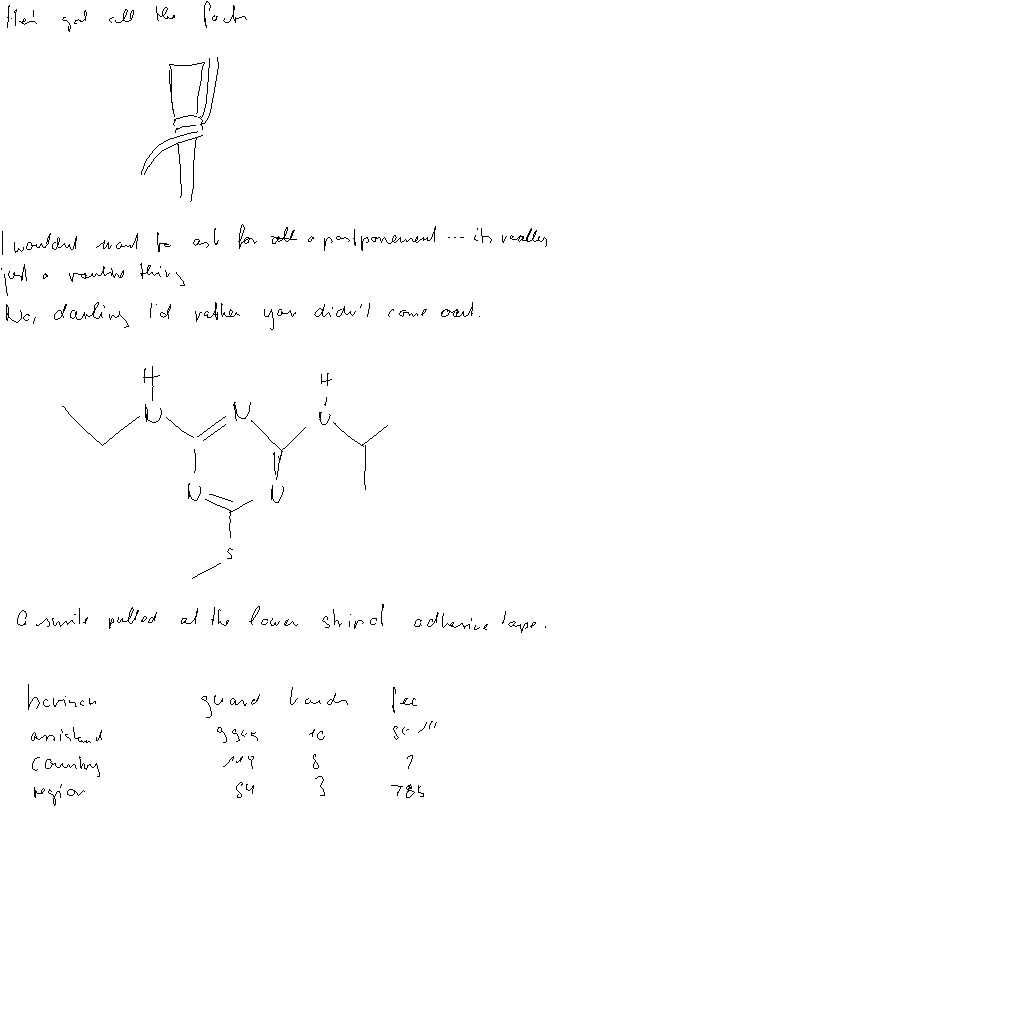 He's got all the facts
I wouldnt want to ask for a postponement ... its really
just a routine thing
No, darling I'd rather you didn't come out.
H
H
N
N
N
N
N
S
A smile pulled at the lower strip of adhesive tape.
horizon guard bands fee
assistant 9945 10
country 119 8 7
region 84 3 785